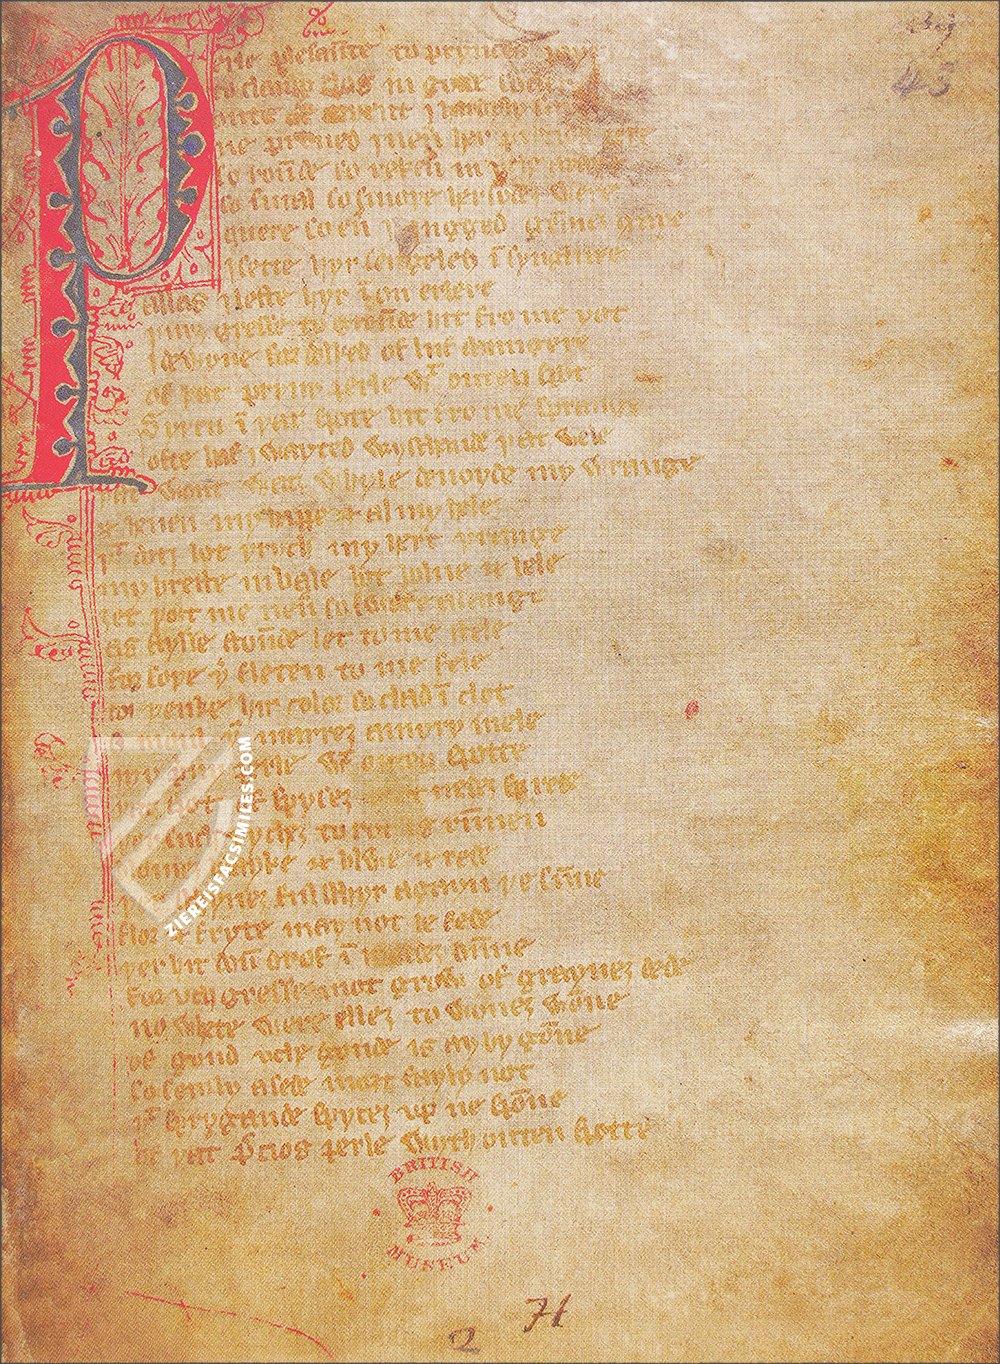 Perle plesaūte to prynces paye
to clanly clos in golde so clere
oute of oryent I hardyly saye
ne proued I neuer her precios pere
so roūde so reken in vche araye
so smal so smoþe her sydez were
quere so eu͛ I jugged gēmez gaye
I sette hyr sengeley ī synglere
allas I leste hyr ī on erbere
þurȝ gresse to groūde hit fro me yot
I dewyne for dolked of luf daungere
of þat pryuy perle wᵗ outen spot
Syþen ī þat spote hit fro me sprange
ofte haf I wayted wyschande þat wele
þat wont watȝ whyle deuoyde my wrange
& heuen my happe & al my hele
þᵗ dotȝ bot þrych my hert þrange
my breste in bale bot bolne & bele
ȝet þoȝt me neu͛ so swete a sange
as stylle stoūde let to me stele
for soþe þ͛ fleten to me fele
to þenke hir color so clad ī clot
o moul þᵘ marrez a myry iuele
my priuy perle wᵗ outen spotte
þat spot of spysez mot nedez sprede
þer such rychez to rot is rūnen
blomez blayke & blwe & rede
þer schynez ful schyr agayn þe sūne
flor & fryte may not be fede
þer hit doū drof ī moldez dūne
for vch gresse mot grow of graynez dede
no whete were ellez to wonez wōne
of goud vche goude is ay by gōne
so semly a sede moȝt fayly not
þᵗ spryngande spycez vp ne spōne
of þat p͛cios perle wyth outen spotte
43
BRITISH
MUSEUM
H
2
ZIEREISFACSIMILES.COM